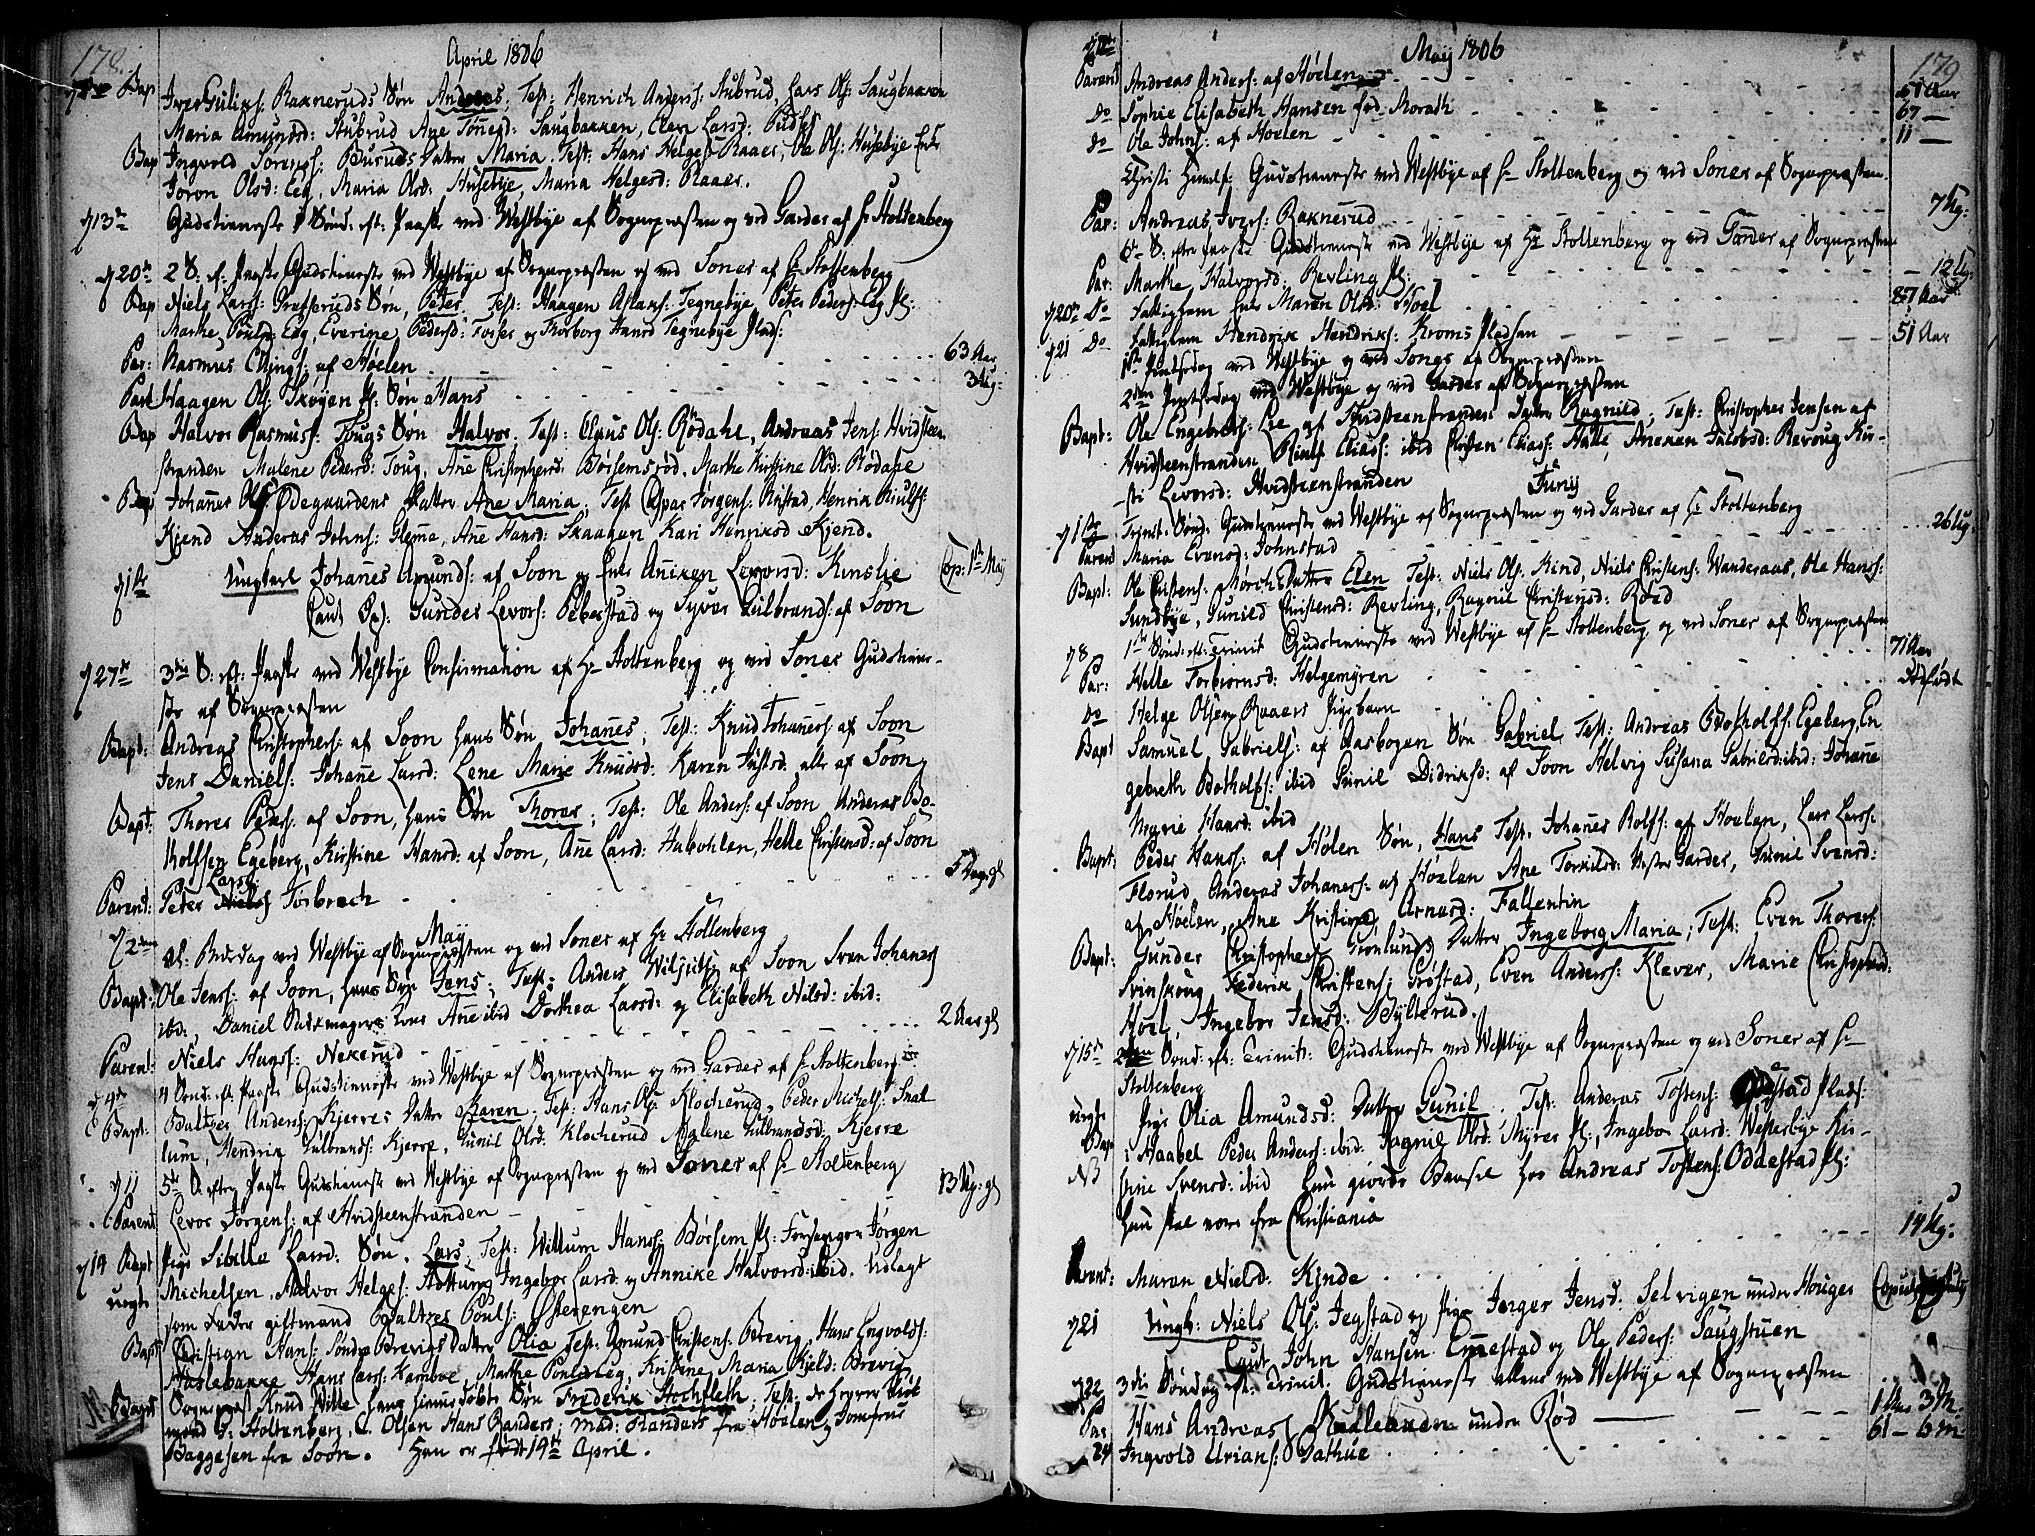 178.
April 1806
Bap Iver Gulixs: Rakneruds Søn Andreas, Test: Henrich Anders: Stubrud, Lars Ols: Saugbakken
Maria Amundsd: Stubrud Ane Tønesd: Saugbakken, Elen Larsd:
Bap Ingvold Sørens: Buruds Datter Maria. Test: Hans Helges: Raaer, Ole Ols: Husebye Enke
Jøron Olsd: Eeg, Maria Olsd: Husebye, Maria Helgesd: Raaer.
13de Gudstieneste 1 Sønd: eft: Paaske ved Westbye af Sognepræsten og ved Garder af Hr Stoltenberg
20de 2 S. ef. Paaske Gudstieneste ved Westbye af Sognepræsten og ved Soner af Hr Stoltenberg
Bap Niels Larss: Græsseruds Søn, Peder. Test: Haagen Aslaks: Tegnebye, Peter Peders: Eeg Pl:
Marthe Pouls: Eeg, Everine Pedersd: Fosser og Thorborg Hansd Tegnebye Plads:
Par: Rasmus Ellings: af Høelen 63 Aar
Par: Haagen Ols: Skogen Pl: Søn Hans 3 Ug:
Bap Halvor Rasmus: Tougs Søn Halvor. Test: Claus Ols: Rødahl, Andreas Jens: Hvidsteen
stranden Malene Pedersd: Toug, Ane Christophersd: Børsemsrød, Marthe Kirstine Olsd: Rødahl
Bap Johanes Ols: Ødegaardens Datter Ane Maria. Test Espar Jørgens: Kristad, Henrik Niulss:
Kjend Anderas Johns: Glenne, Ane Hansd: Skaagen Kari Henriksd Kjend.
1ste Ungkarl Johanes Amunds: af Soon og Enke Aniken Levorsd: Kinslie Cop: 1ste May
Caut Opl: Gunder Levors: Peberstad og Syver Gulbrands: af Soon
27de 3die S. eft. Paaske ved Westbye Confirmation af Hr Stoltenberg og ved Soner Gudstiene-
ste af Sognepræsten
Bapt: Andreas Christophers: af Soon hans Søn Johanes, Test: Knud Johaners: af Soon
Jens Daniels: Johane Larsd: Lene Marie Knudsd: Karen Justsd: alle af Soon
Bapt: Thorer Peders: af Soon, hans Søn Thorer, Test: Ole Anders: af Soon Anderas Bo-
tholfsen Egeberg, Kirstine Hansd: af Soon, Ane Larsd: Habohlen, Helle Christensd: af Soon
Parent: Peder Larss: Torbrech 5 Dage gl
May
2den Al: Bededag ved Westbye af Sognepræsten og ved Soner af Hr Stoltenberg
Bapt: Ole Jenss: af Soon, hans Søn Jens, Test: Anders Nils: af Soon Sven Johanes:
ibd:, Daniel Kone Ane ibid Dorthea Larsd: og Elisabeth Nilsd: ibid:
Parent: Niels Hanss: Nekerud 2 Aar gl
4de 4 Sønd. eft. Paaske Gudstieneste ved Westbye af Sognepræsten og ved Garder af Hr Stoltenberg
Bapt: Baltzer Anders: Kjerres Datter Karen. Test: Hans Ols: Klocherud, Peder Michels: Snal
lum, Hendrik Gulbrands: Kjerre, Gunil Olsd: Klocherud Malene Gulbrandsd: Kjerre
11 5te S. efter Paaske Gudstieneste ved Westbye af Sognepræsten og ved Soner af Hr Stoltenberg
Parent Levor Jørgens: af Hvidsteenstranden 13 Ug: gl
14 Bapt Pige Sibille Larsd: Søn. Lars. Test: Willum Hans: Børsem Pl: Forsanger Jørgen
uægte Michelsen, Halvor Helges: Ingebor Larsd: og Annike Halvorsd: ibid. Udlagt
som Fader giftmand Baltzer Pouls: Østerengen
Bapt Christian Hans: Søndre Brevigs Datter Olia Test: Amund Christens: Brevig, Hans Engvolds:
Haslebakke Hans Larss: Kamboe, Marthe Poulsd Eeg, Kirstine Maria Kield: Brevig
NB Bapt Sogneprest Knud Wille hans hiemmedøbte Søn Frederik Hochfleth, Test: de Herrer
mand G: Stoltenberg, C. Olsen Hans Randers, Mad: Randers fra Høelen, Jomfrue
Baggesen fra Soon. Han er født 19de April.
May 1806
179
Parent Andreas Anders: af Høelen 51 Aar
do Sophie Elisabeth Hansen fød Morath 67 —
do Ole Johns: af Høelen 11 —
Christi Himelf: Gudstieneste ved Westbye af Hr Stoltenberg og ved Soner af Sognepræsten
Par: Andreas Ivers: Raknerud 7 Ug:
6te S. eftr Paaske Gudstieneste ved Westbye af Hr Stoltenberg og ved Garder af Sognepræsten
Par: Marthe Halvorsd: Revling Pl: 12 Ug:
20de Do Fattiglem Enke Maren Olsd: Hoel 87 Aar
21 do Fattiglem Hendrik Hendriks: Kroms Pladsen 51 Aar
1ste Pintsedag ved Westbye og ved Soner af Sognepræsten
2den Pintsedag ved Westbye og ved Garder af Sognepræsten
Bapt: Ole Engebrets: Lie af Hvidsteenstranden Datter Ragnild. Test: Christopher Jensen af
Hvidsteenstranden Niuls Eliass: ibid Christen Eliass: Halle, Aneken Jacobsd: Revoug Kir-
-sti Levorsd: Hvidsteenstranden
Juny
1ste Trinit. Sønd. Gudstieneste ved Westbye af Sognepræsten og ved Garder af Hr Stoltenberg
Parent Maria Evensd: Johnstad 26 Ug:
Bapt: Ole Christens: Mørchs Datter Elen Test: Niels Ols: Kind, Niels Christens: Wanderaas, Ole Hanss:
Sundbye, Gunild Christensd: Revling, Ragnil Christensd: Roed
8 1ste Sønd: eft: Trinit Gudstieneste ved Westbye af Hr Stoltenberg og ved Soner af Sognepræsten
Par: Helle Torbiørnsd: Helgemyren 71 Aar
do Helge Olsens Raaers Pigebarn Dødfødt
Bapt Samuel Gabriels: af Aasbogen Søn Gabriel Test: Andreas Botholfs: Egeberg, En
gebreth Botholfs: ibid Gunil Didriksd: af Soon Helvig Susana Gabrielsd: ibid: Johane
Marie Hansd: ibid
Bapt: Peder Hanss: af Hølen Søn, Hans Test. Johanes Rolfs: af Hoelen, Lars Larss:
Florud, Anderas Johaners: af Høelen Ane Torkildsd: Vestre Garder, Gunil Svensd:
af Høelen, Ane Kristine Arnesd: Fallentin
Bapt: Gunder Christophers: Grønlunds Datter Ingeborg Maria; Test: Even Thorers:
Svinskoug Federik Christens: Grøstad, Even Anderss: Klever, Marie Christophersd:
Hoel, Ingebor Jensd: Bylterud.
15de 2den Sønd: eft: Trinit: Gudstieneste ved Westbye af Sognepræsten og ved Soner af Hr
Stoltenberg
uægte Pige Olia Amundsd: Datter Gunil. Test: Anderas Tostens: Odestad Plads:
Bap i Haabel Peder Anders: ibid. Ragnil Olsd: Myrer Pl:, Ingebor Larsd: Westerbye Kir-
NB stine Svensd: ibid hun giorde Barsel hos Andreas Tostens: Oddestad Pl:
hun skal være fra Christiania
Parent: Maren Nielsd: Kinde 14 Ug:
21 Ungk: Niels Ols: Jegstad og Pige Inger Jensd: Selvigen under Houger Copul
Caut. John Hansen Emmestad og Ole Peders: Saugstuen
22 3die Søndag eft: Trinit. Gudstieneste allene ved Westbye af Sognepræsten
Par Hans Andreas: Kalleaxen under Rød 1 Aar 3 M.
24 Ingvold Urians: Bathue 61 — 6 M: